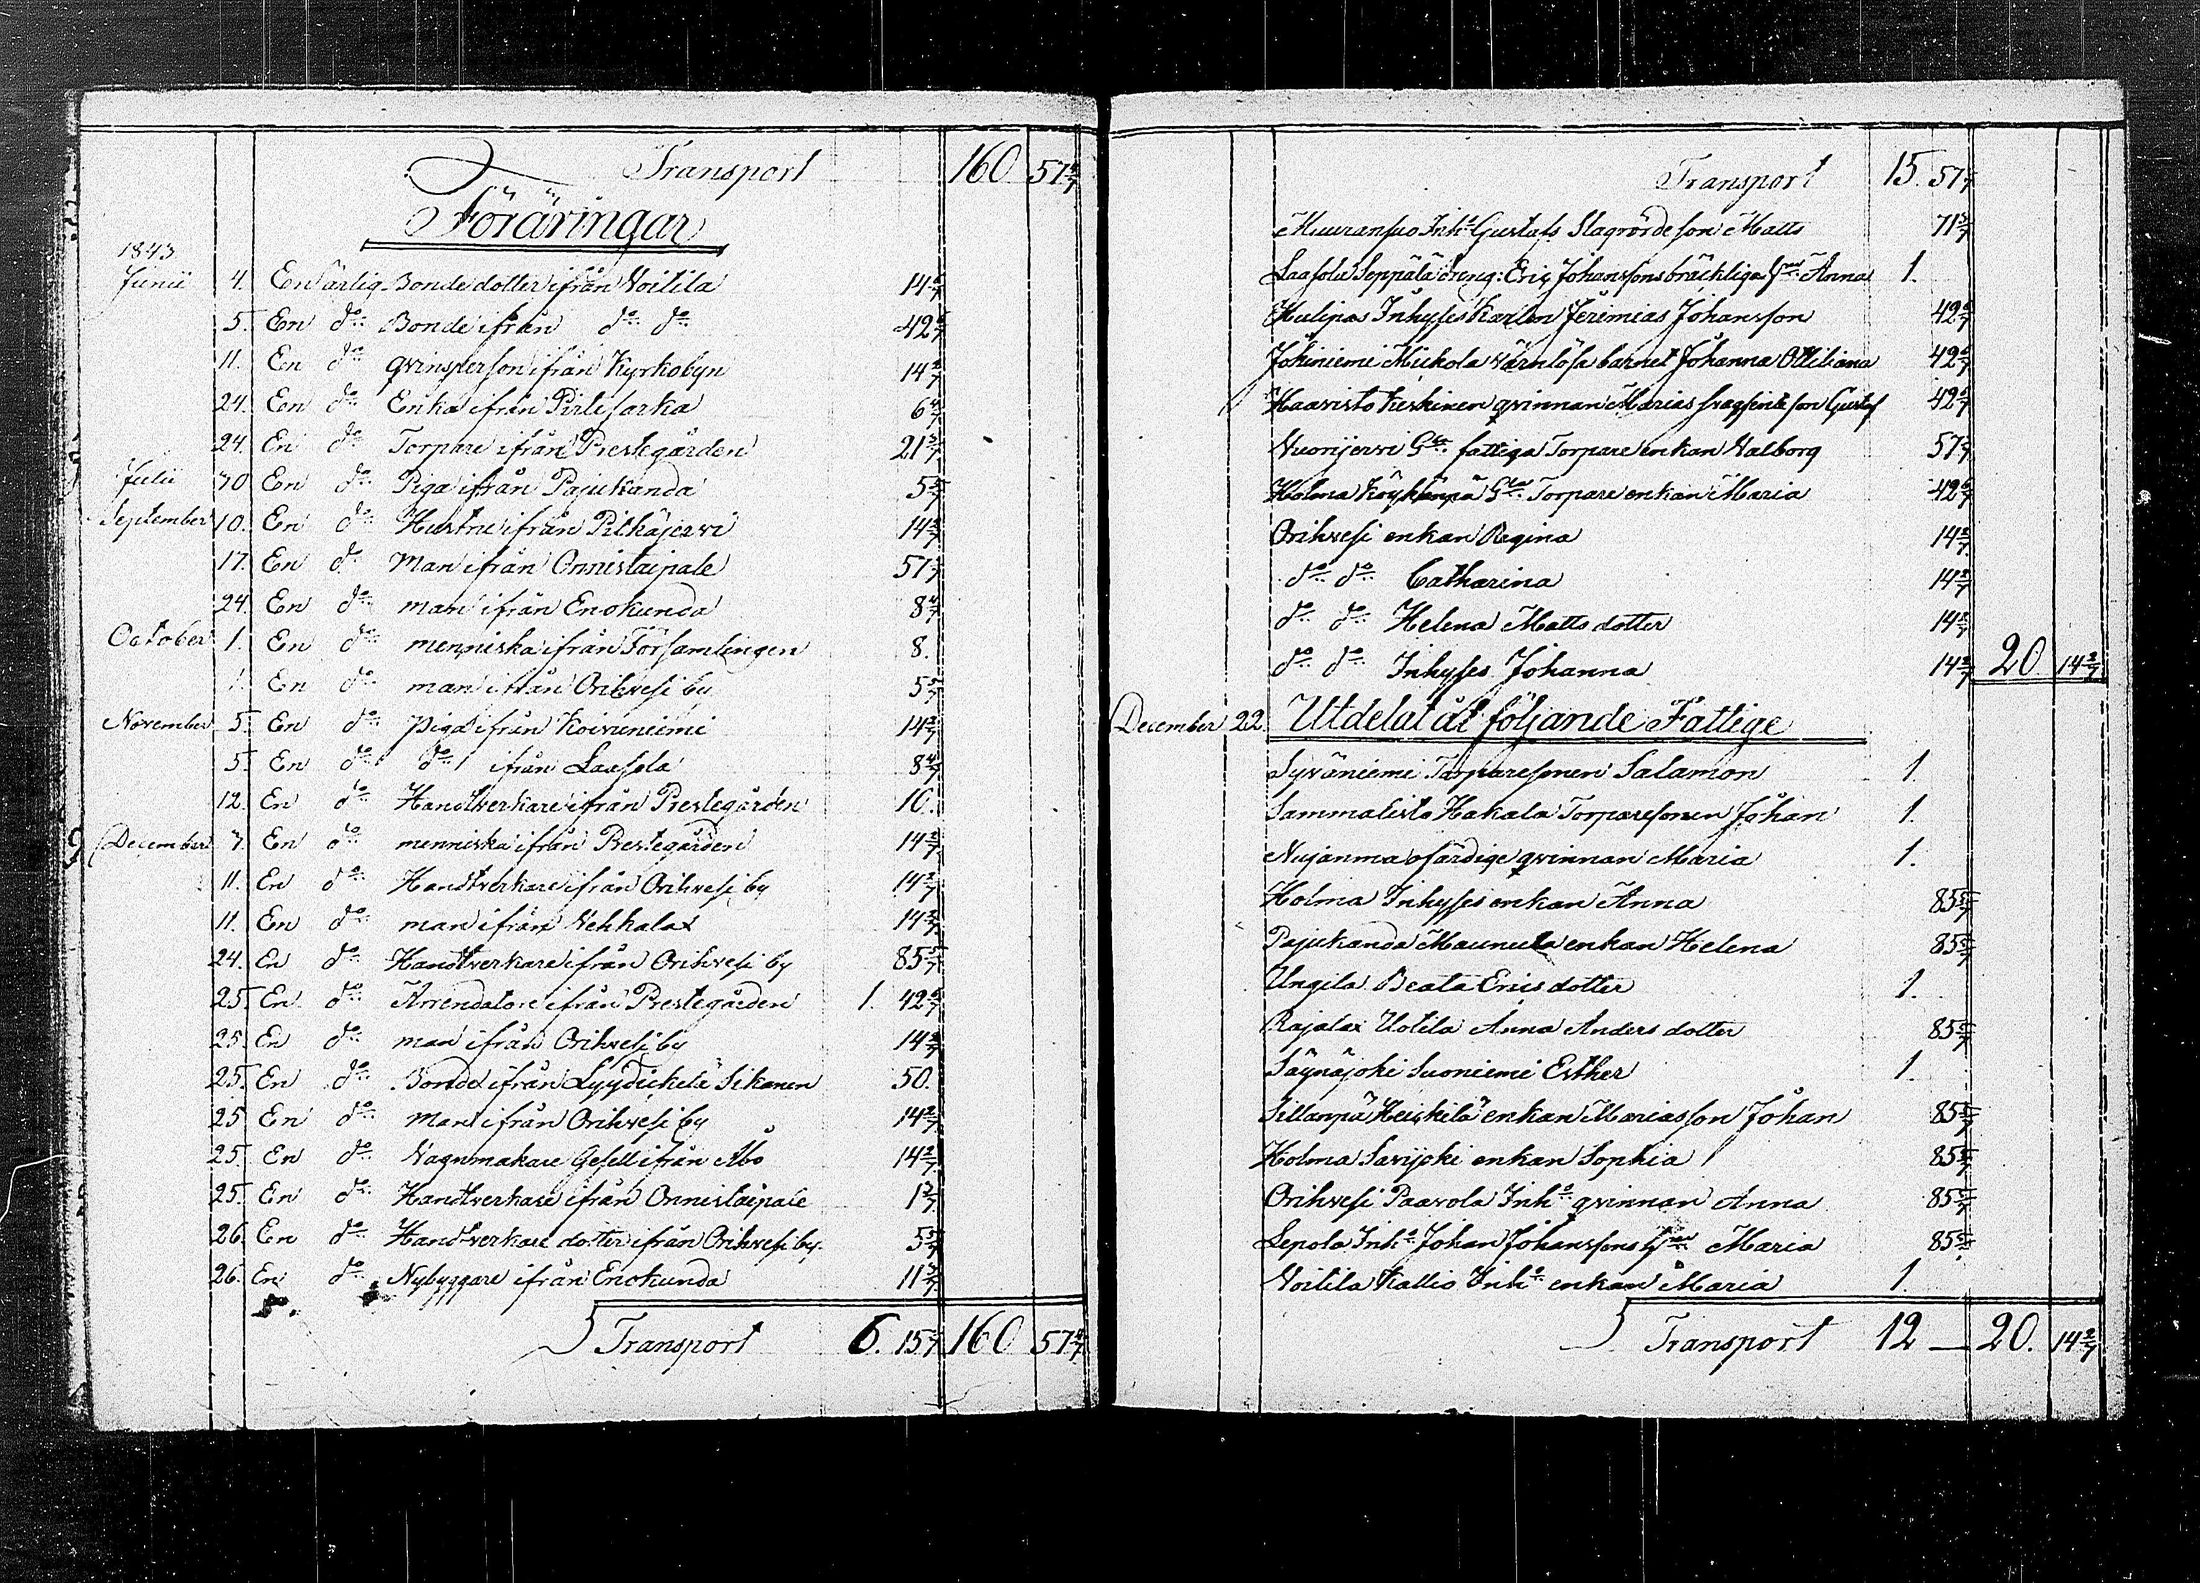 Transport 160 57 1/7
Föräringar
1843
Junii 4. En ärlig Bonde dotter ifrån Voitila 14 2/7
5. En do Bonde ifrån do do 42 6/7
11. En do qvinsperson ifrån Kyrkobyn 14 2/7
24. En do Enka ifrån Pirtisarka 6 4/7
24. En do Torpare ifrån Prestegården 21 3/7
Julii 30 En do Piga ifrån Pajukanda 5 5/7
September 10. En do Hustru ifrån Pitkäjerwi 14 2/7
17. En do Man ifrån Onnistaipale 57 1/7
24. En do man ifrån Enokunda 8 4/7
October 1. En do menniska ifrån Församlingen 8.
1. En do man ifrån Orihvesi by 5 5/7
November 5. En do piga ifrån Koivuniemi 14 2/7
5. En do do ifrån Laasola 8 4/7
12. En do Handtverkare ifrån Prestegården 10.
December 7. En do menniska ifrån Prestegården 14 2/7
11. En do Handtverkare ifrån Orihvesi by 14 2/7
11. En do man ifrån Vehkalax 14 2/7
24. En do Handtverkare ifrån Orihvesi by 85 5/7
25. En do Arrendatore ifrån Prestegården 1. 42 6/7
25. En do man ifrån Orihvesi by 14 2/7
25. En do Bonde ifrån Lyydickelä Sikanen 50.
25 En do man ifrån Orihvesi by 14 2/7
25. En do Vagnmakare Gesell ifrån Åbo 14 2/7
25. En do Handtverkare ifrån Onnistaipale 1 3/7
26. En do Handtverkare dotter ifrån Orihvesi by. 5 5/7
26. En do Nybyggare ifrån Enokunda 11 3/7
Transport 6. 15 5/7 160 57 1/7
Transport 15. 57 1/7
Inhs Gustafs Slagrörde son Matts 71 3/7
Laasola Seppälä dreng: Eric Johanssons bräckliga Anna 1.
Hulipas Inhyses Karlen Jeremias Johansson 42 6/7
Jokiniemi Mickola värnlösa barnet Johanna Ottiliana 42 6/7
Haavisto Keskinen qvinnan Marias svagsinte son Gustaf 42 6/7
Vuorijerwi Gla fattiga Torpare enkan Valborg 57 1/7
Holma Gla Torpare enkan Maria 42 6/7
Orihvesi enkan Regina 14 2/7
do do Catharina 14 2/7
do do Helena Matts dotter 14 2/7
do do Inhyses Johanna 14 2/7 20 14 2/7
December 22. Utdelat åt följande Fattige
Syväniemi Torparesonen Salamon 1.
Sammalisto Hakala Torparesonen Johan 1.
Nujanma ofärdige qvinnan Maria 1.
Holma Inhyses enkan Anna 85 5/7
Pajukanda Maunula enkan Helena 85 5/7
Ungila Beata Erics dotter 1.
Rajalax Uotila Anna Anders dotter 85 5/7
Säynäjoki Suoniemi Esther 1.
Sillanpä Heickilä enkan Marias son Johan 85 5/7
Holma Savijoki enkan Sophia 85 5/7
Orihvesi Paavola Inhs qvinnan Anna 85 5/7
Lepola Inhs Johan Johanssons Maria 85 5/7
Voitila Kallio Inhs enkan Maria 1.
Transport 12 — 20. 14 2/7